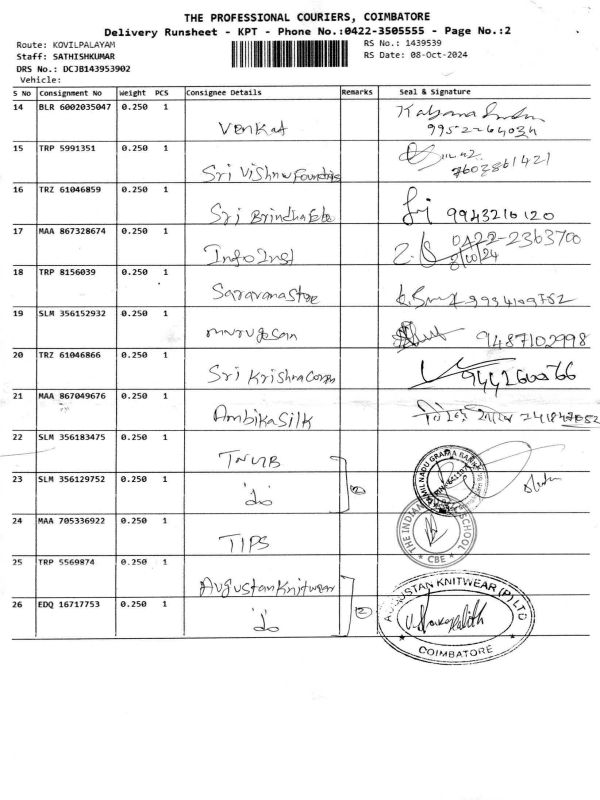 THE PROFESSIONAL COURIERS, COIMBATORE
Delivery Runsheet - KPT - Phone No.:0422-3505555 - Page No.:2
Route: KOVILPALAYAM
RS No.: 1439539
Staff: SATHISHKUMAR
RS Date: 08-Oct-2024
DRS No.: DCJB143953902
Vehicle:
S No Consignment No Weight PCS Consignee Details Remarks Seal & Signature
14 BLR 6002035047 0.250 1
Venkat 99522-64034
15 TRP 5991351 0.250 1
Sri Vishnu Foundries 7603861421
16 TRZ 61046859 0.250 1
Sri Brindha 9943210120
17 MAA 867328674 0.250 1
Info Inst 0422-2363700
8/10/24
18 TRP 8156039 0.250 1
Saravana Store
19 SLM 356152932 0.250 1
murugesan 9487102998
20 TRZ 61046866 0.250 1
Sri Krishna Corps
21 MAA 867049676 0.250 1
Ambika Silk
22 SLM 356183475 0.250 1
TNGB TAMIL NADU GRAMA BANK
23 SLM 356129752 0.250 1
do 2
24 MAA 705336922 0.250 1
TIPS THE INDIAN SCHOOL CBE
25 TRP 5569874 0.250 1
Augustan Knitwear
26 EDQ 16717753 0.250 1
do 2 AUGUSTAN KNITWEAR (P) LTD
COIMBATORE